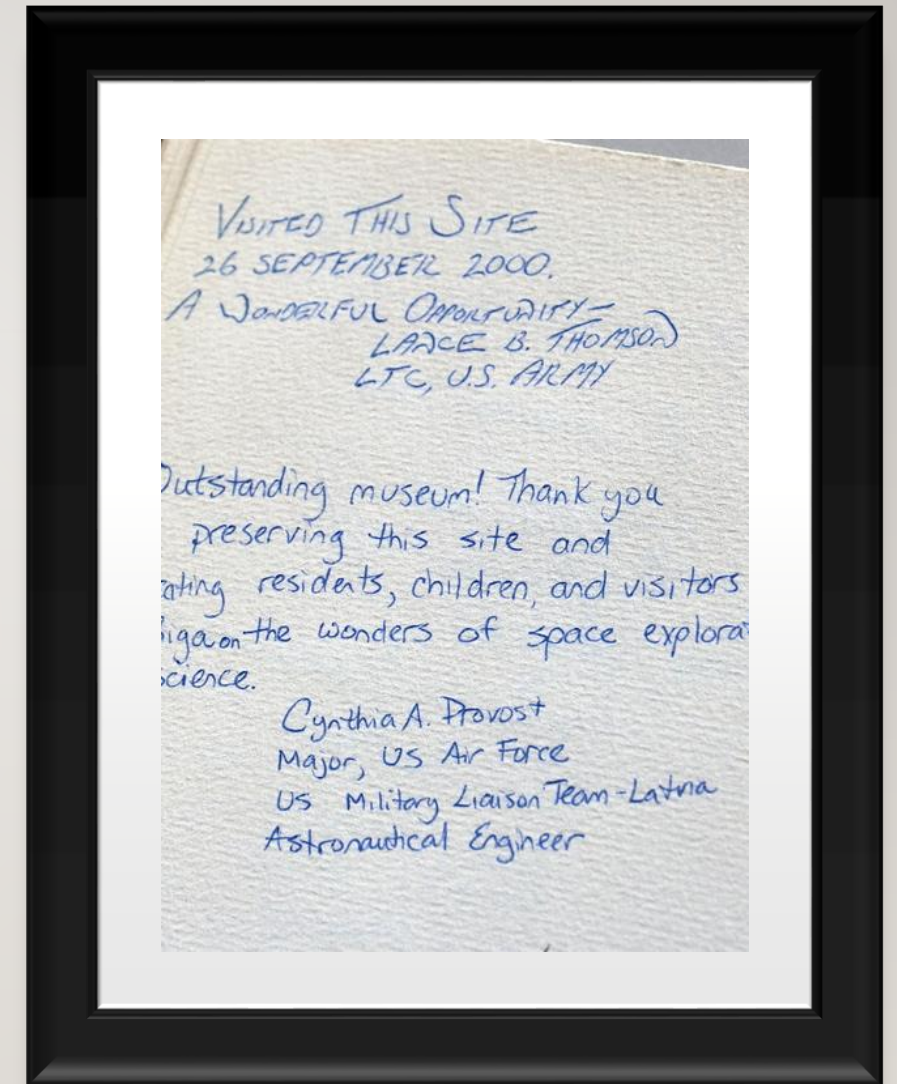 VISITED THIS SITE
26 SEPTEMBER 2000.
A WONDERFUL OPPORTUNITY-
LANCE B. THOMSON
LTC, U.S. ARMY
Outstanding museum! Thank you
preserving this site and
ating residents, children, and visitors
iga on the wonders of space explora
science.
Cynthia A. Provost
Major, US Air Force
US Military Liaison Team-Latvia
Astronautical Engineer